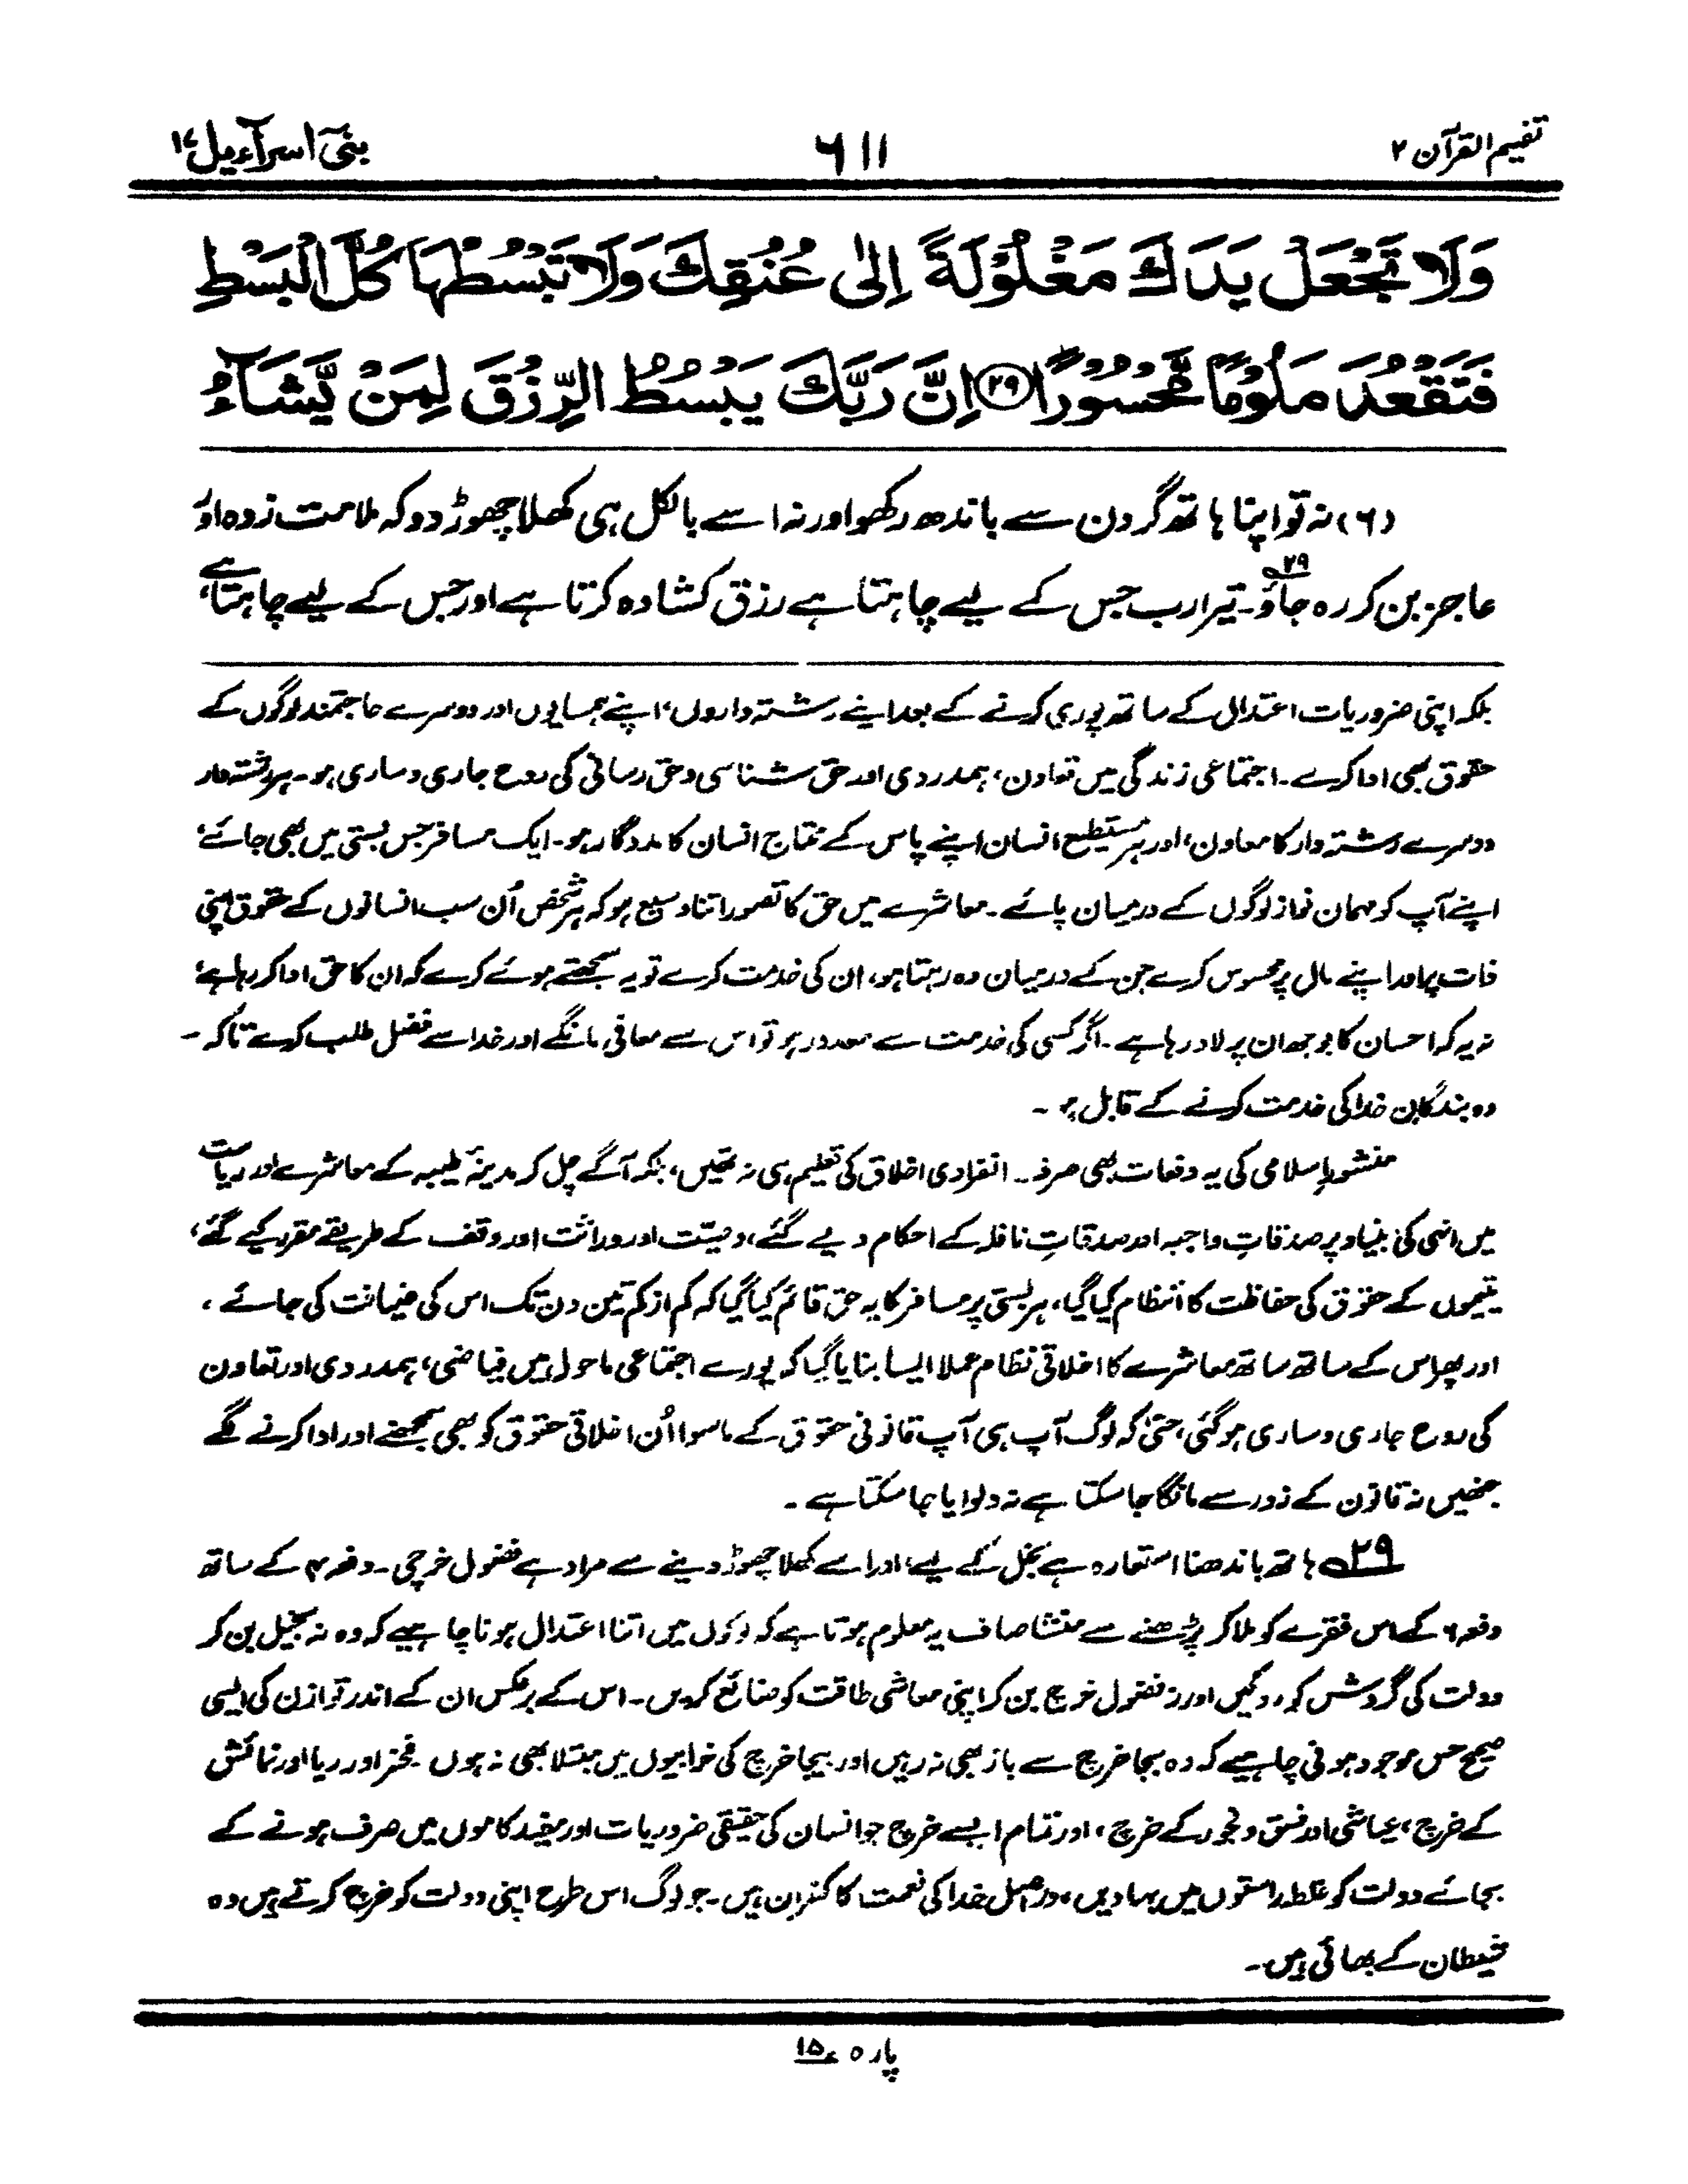 تفہیم القرآن ۲
۶۱۱
بنیٓ اسرآءیل ۱۷
وَلَا تَجْعَلْ يَدَكَ مَغْلُوْلَةً اِلٰى عُنُقِكَ وَلَا تَبْسُطْهَا كُلَّ الْبَسْطِ
فَتَقْعُدَ مَلُوْمًا مَّحْسُوْرًا ﴿۲۹﴾ اِنَّ رَبَّكَ يَبْسُطُ الرِّزْقَ لِمَنْ يَّشَآءُ
(۶) نہ تو اپنا ہاتھ گردن سے باندھ رکھو اور نہ اسے بالکل ہی کھلا چھوڑ دو کہ ملامت زدہ اور
عاجز بن کر رہ جاؤ۔ ۲۹ تیرا رب جس کے لیے چاہتا ہے رزق کشادہ کرتا ہے اور جس کے لیے چاہتا ہے
بلکہ اپنی ضروریات اعتدال کے ساتھ پوری کرنے کے بعد اپنے رشتہ داروں، اپنے ہمسایوں اور دوسرے حاجتمند لوگوں کے
حقوق بھی ادا کرے۔ اجتماعی زندگی میں تعاون، ہمدردی اور حق شناسی و حق رسانی کی روح جاری و ساری ہو۔ ہر رشتہ دار
دوسرے رشتہ دار کا معاون، اور ہر مستطیع انسان اپنے پاس کے محتاج انسان کا مددگار ہو۔ ایک مسافر جس بستی میں بھی جائے،
اپنے آپ کو مہمان نواز لوگوں کے درمیان پائے۔ معاشرے میں حق کا تصور اتنا وسیع ہو کہ ہر شخص اُن سب انسانوں کے حقوق اپنی
ذات پر اور اپنے مال پر محسوس کرے جن کے درمیان وہ رہتا ہو، ان کی خدمت کرے تو یہ سمجھتے ہوئے کرے کہ ان کا حق ادا کر رہا ہے،
نہ یہ کہ احسان کا بوجھ ان پر لاد رہا ہے۔ اگر کسی کی خدمت سے معذور ہو تو اس سے معافی مانگے اور خدا سے فضل طلب کرے تاکہ ۔
وہ بندگانِ خدا کی خدمت کرنے کے قابل ہو۔
منشورِ اسلامی کی یہ دفعات بھی صرف ۔ انفرادی اخلاق کی تعلیم ہی نہ تھیں، بلکہ آگے چل کر مدینۂ طیبہ کے معاشرے اور ریاست
میں انہی کی بنیاد پر صدقاتِ واجبہ اور صدقاتِ نافلہ کے احکام دیے گئے، وصیّت اور وراثت اور وقف کے طریقے مقرر کیے گئے،
یتیموں کے حقوق کی حفاظت کا انتظام کیا گیا، ہر بستی پر مسافر کا یہ حق قائم کیا گیا کہ کم از کم تین دن تک اس کی ضیافت کی جائے،
اور پھر اس کے ساتھ ساتھ معاشرے کا اخلاقی نظام عملاً ایسا بنایا گیا کہ پورے اجتماعی ماحول میں فیاضی، ہمدردی اور تعاون
کی روح جاری و ساری ہو گئی، حتٰی کہ لوگ آپ ہی آپ قانونی حقوق کے ماسوا اُن اخلاقی حقوق کو بھی سمجھنے اور ادا کرنے لگے
جنھیں نہ قانون کے زور سے مانگا جا سکتا ہے نہ دلوایا جا سکتا ہے۔
۲۹ ہاتھ باندھنا استعارہ ہے بخل کے لیے، اور اسے کھلا چھوڑ دینے سے مراد ہے فضول خرچی۔ دفعہ ۴ کے ساتھ
دفعہ ۶ کے اس فقرے کو ملا کر پڑھنے سے منشا صاف یہ معلوم ہوتا ہے کہ لوگوں میں اتنا اعتدال ہونا چاہیے کہ وہ نہ بخیل بن کر
دولت کی گردش کو روکیں اور نہ فضول خرچ بن کر اپنی معاشی طاقت کو ضائع کریں۔ اس کے برعکس ان کے اندر توازن کی ایسی
صحیح حس موجود ہونی چاہیے کہ وہ بجا خرچ سے باز بھی نہ رہیں اور بیجا خرچ کی خرابیوں میں مبتلا بھی نہ ہوں۔ فخر اور ریا اور نمائش
کے خرچ، عیاشی اور فسق و فجور کے خرچ، اور تمام ایسے خرچ جو انسان کی حقیقی ضروریات اور مفید کاموں میں صرف ہونے کے
بجائے دولت کو غلط راستوں میں بہا دیں، دراصل خدا کی نعمت کا کفران ہیں۔ جو لوگ اس طرح اپنی دولت کو خرچ کرتے ہیں وہ
شیطان کے بھائی ہیں۔
پارہ ۱۵